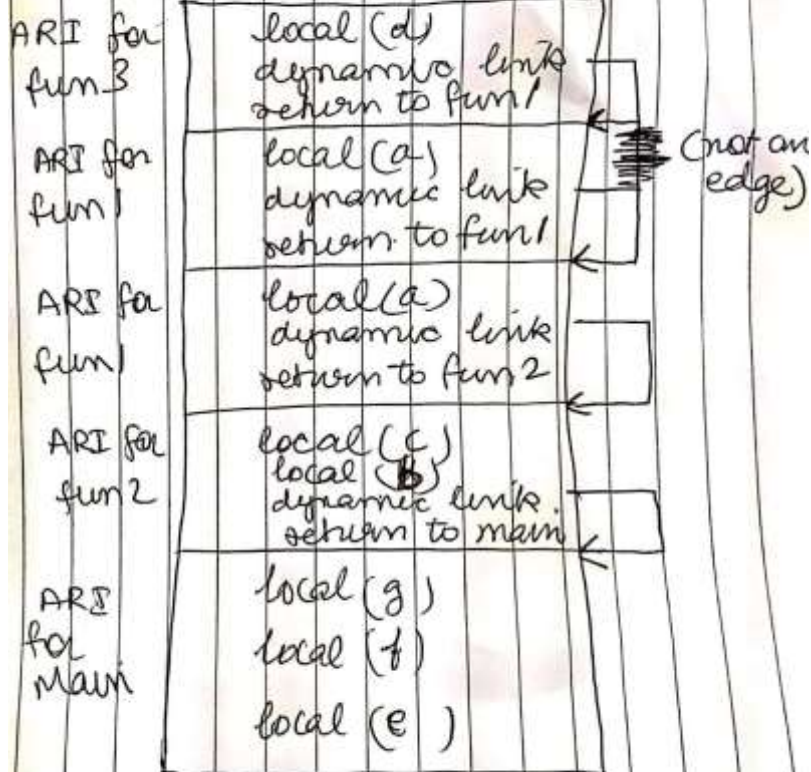 ARI for
fun3
local (d)
dynamic link
return to fun1
(not an
edge)
ARI for
fun1
local (a)
dynamic link
return to fun1
ARI for
fun1
local (a)
dynamic link
return to fun2
ARI for
fun2
local (c)
local (b)
dynamic link
return to main
ARI
for
Main
local (g)
local (f)
local (e)